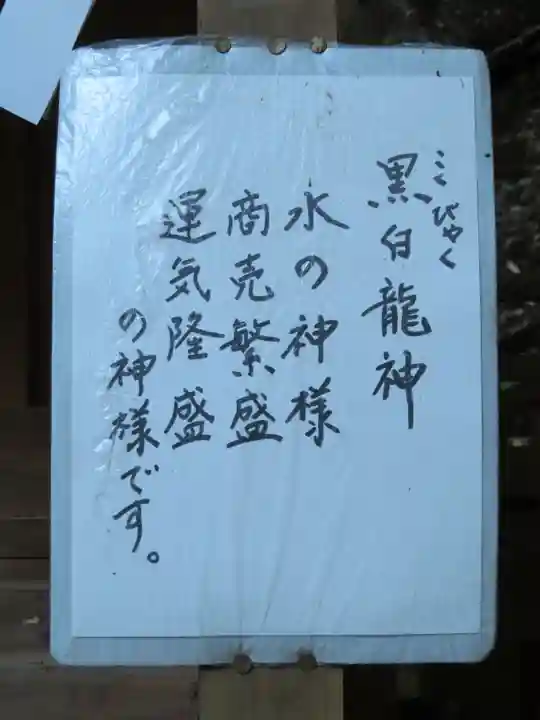 こくびゃく
黒白龍神
水の神様
商売繁盛
運気隆盛
の神様です。